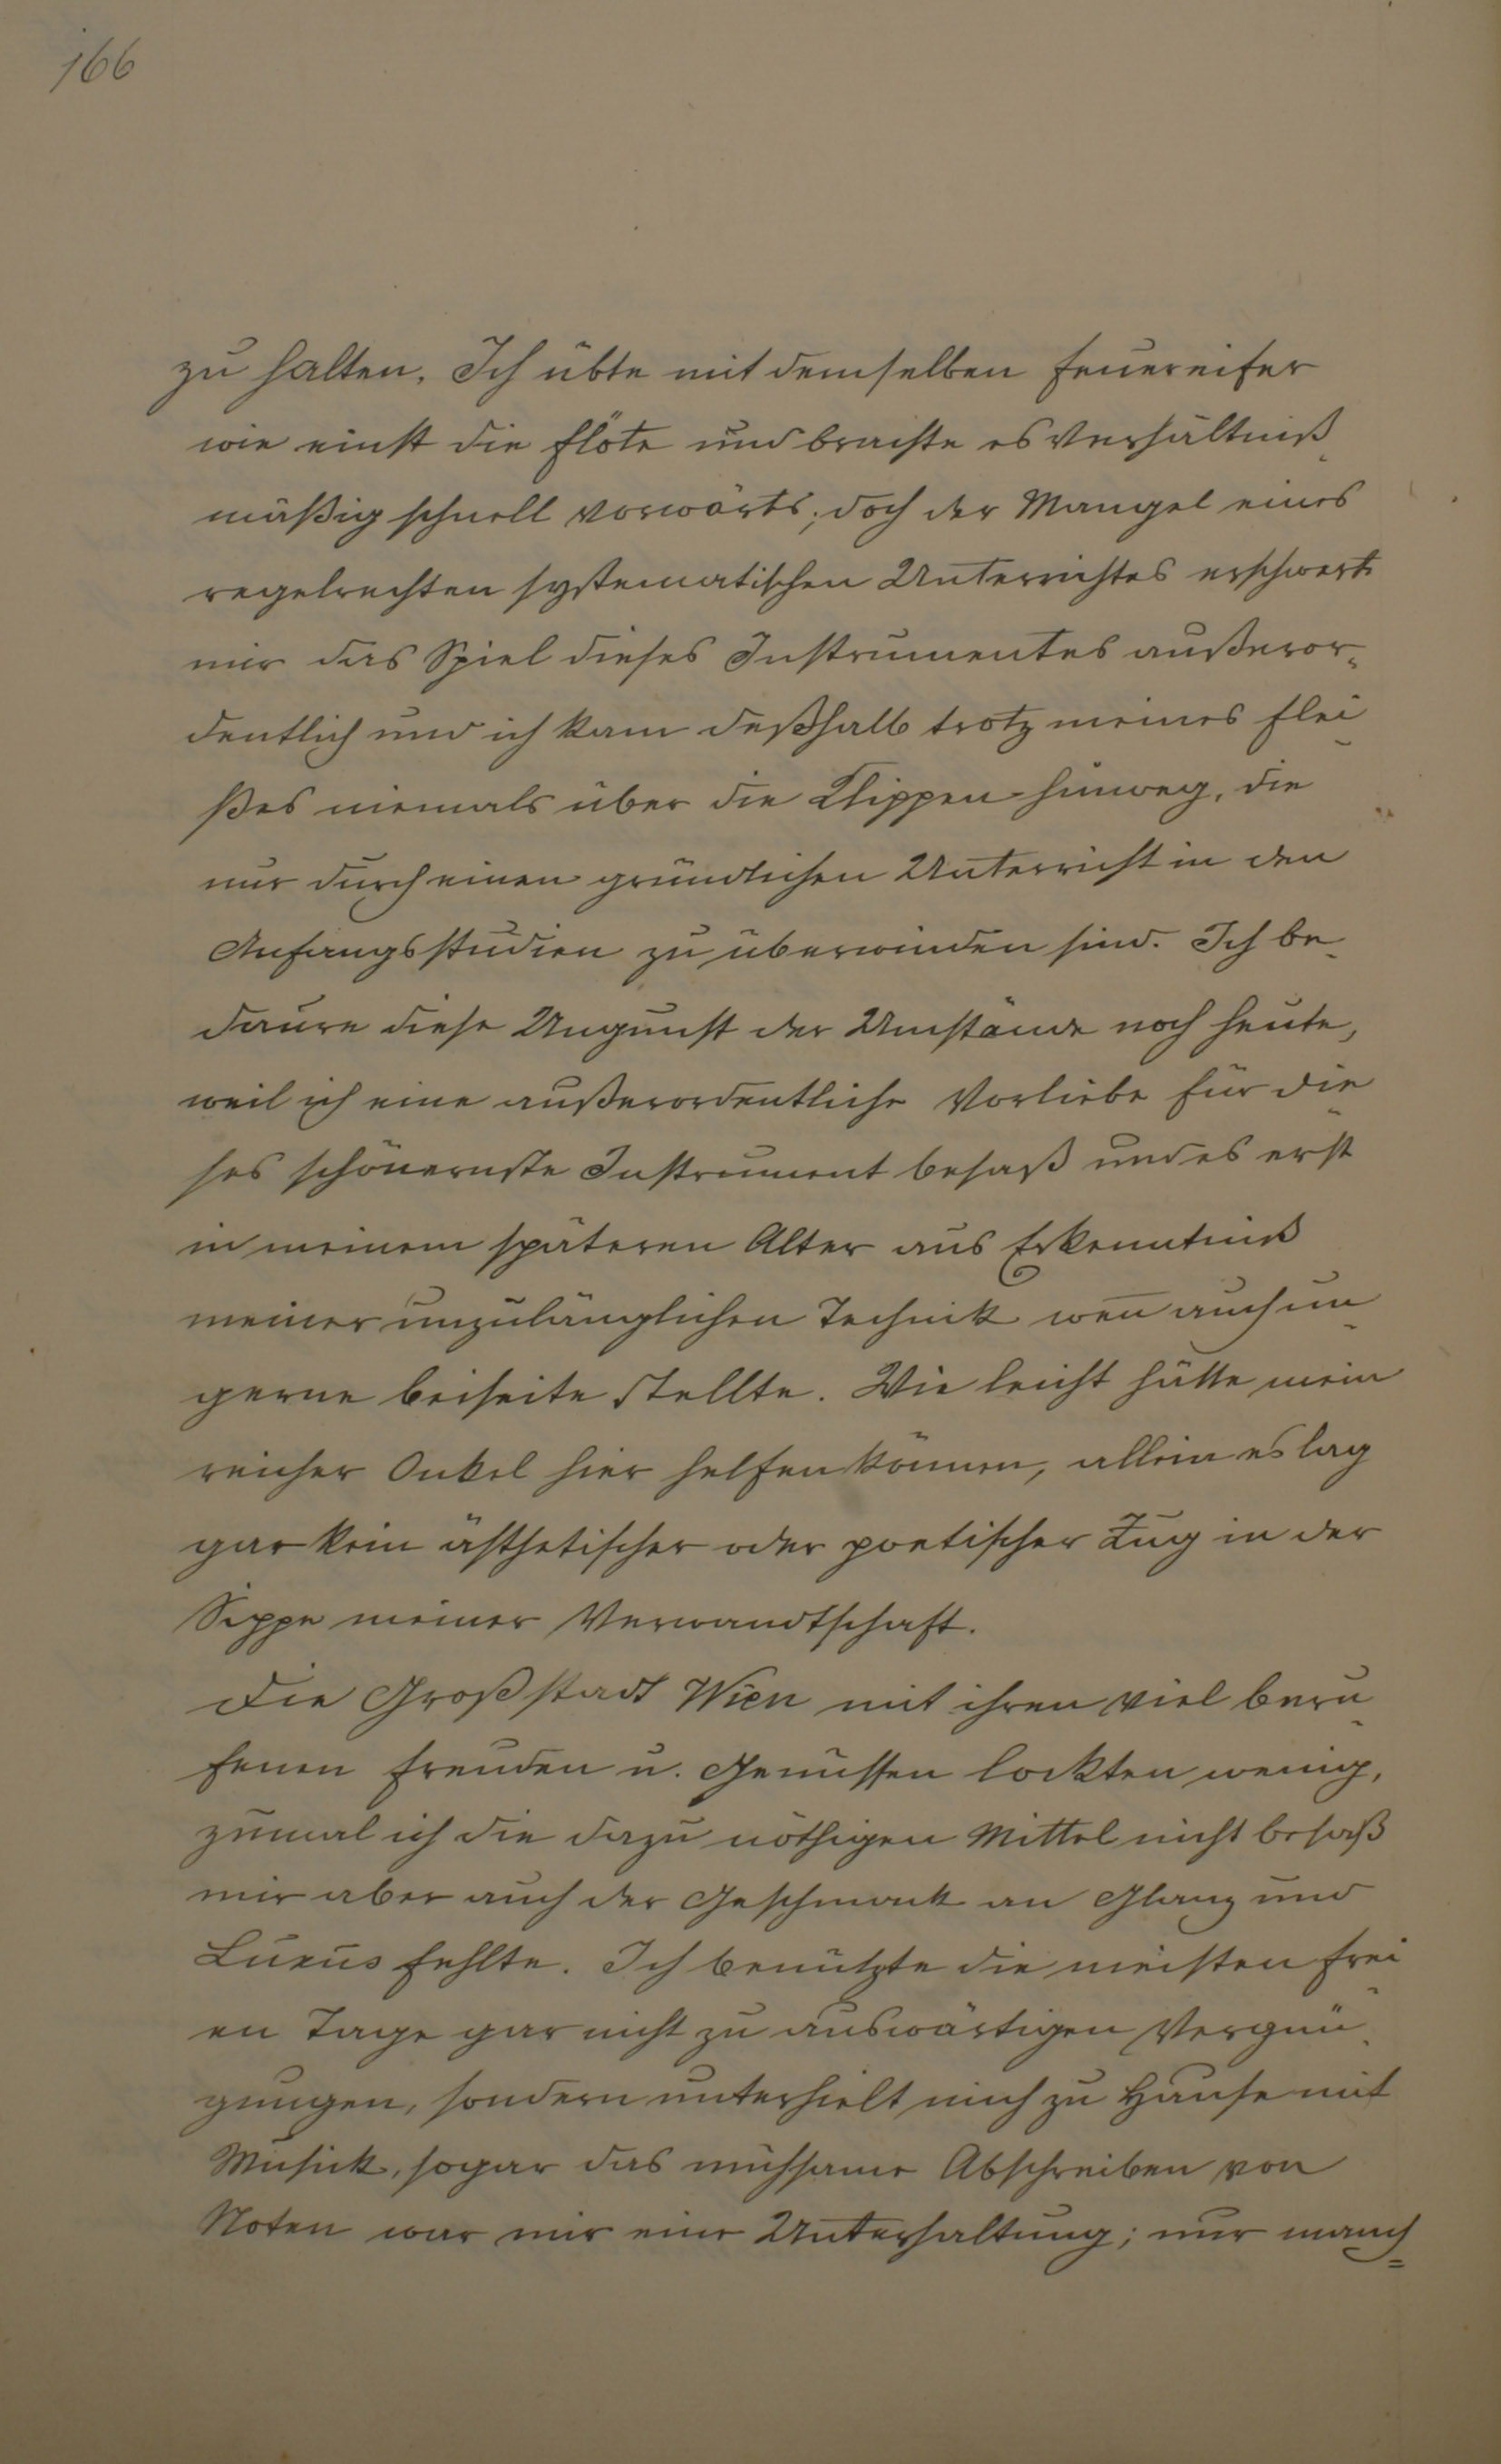 166
zu halten. Ich übte mit demselben Feuereifer
wie einst die Flöte und brachte es verhältniß-
mäßig schnell vorwärts; doch der Mangel eines
regelrechten systematischen Unterrichtes erschwerte
mir das Spiel dieses Instrumentes außeror-
dentlich und ich kam deßhalb trotz meines Flei-
ßes niemals über die Klippen hinweg, die
nur durch einen gründlichen Unterricht in den
Anfangsstudien zu überwinden sind. Ich be-
daure diese Ungunst der Umstände noch heute,
weil ich eine außerordentliche Vorliebe für die-
ses schönernste Instrument besaß und es erst
in meinem späteren Alter aus Erkenntniß
meiner unzulänglichen Technik wen̄ auch un-
gerne beiseite stellte. Wie leicht hätte mein
reicher Onkel hier helfen können, allein es lag
gar kein ästhetischer oder poetischer Zug in der
Sippe meiner Verwandtschaft.
Die Großstadt Wien mit ihren viel beru-
fenen Freuden u. Genüssen lockten wenig,
zumal ich die dazu nöthigen Mittel nicht besaß
mir aber auch der Geschmack an Glanz und
Luxus fehlte. Ich benützte die meisten frei-
en Tage gar nicht zu auswärtigen Vergnü-
gungen, sondern unterhielt mich zu Hause mit
Musick, sogar das mühsame Abschreiben von
Noten war mir eine Unterhaltung; nur manch=